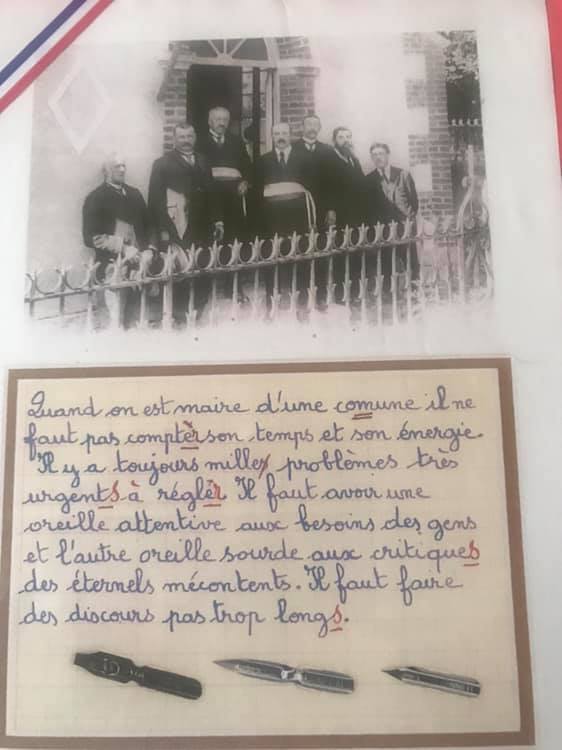 Quand on est maire d'une comune il ne
faut pas compter son temps et son énergie.
Il y a toujours milles problèmes très
urgents à régler Il faut avoir une
oreille attentive aux besoins des gens
et l'autre oreille sourde aux critiques
des éternels mécontents. Il faut faire
des discours pas trop longs.